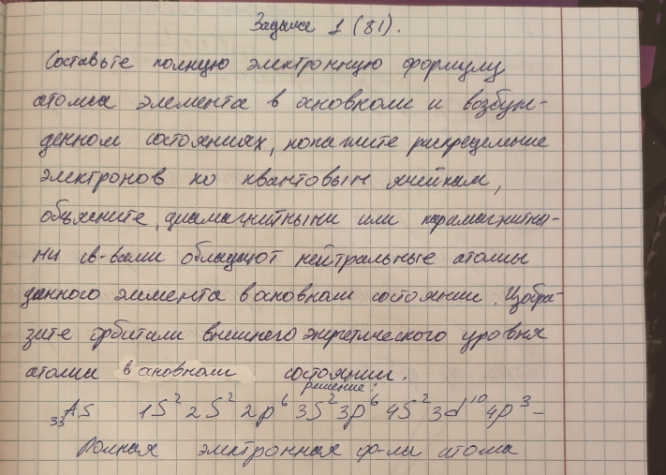 Задача 1 (81).
Составьте полную электронную формулу
атома элемента в основном и возбуж-
денном состояниях, покажите распределение
электронов по квантовым ячейкам,
объясните, диамагнитными или парамагнитны-
ми св-вами обладают нейтральные атомы
данного элемента в основном состоянии. Изобра-
зите орбитали внешнего энергетического уровня
атома в основном состоянии.
решение:
₃₃As 1S² 2S² 2p⁶ 3S² 3p⁶ 4S² 3d¹⁰ 4p³ –
полная электронная ф-ла атома